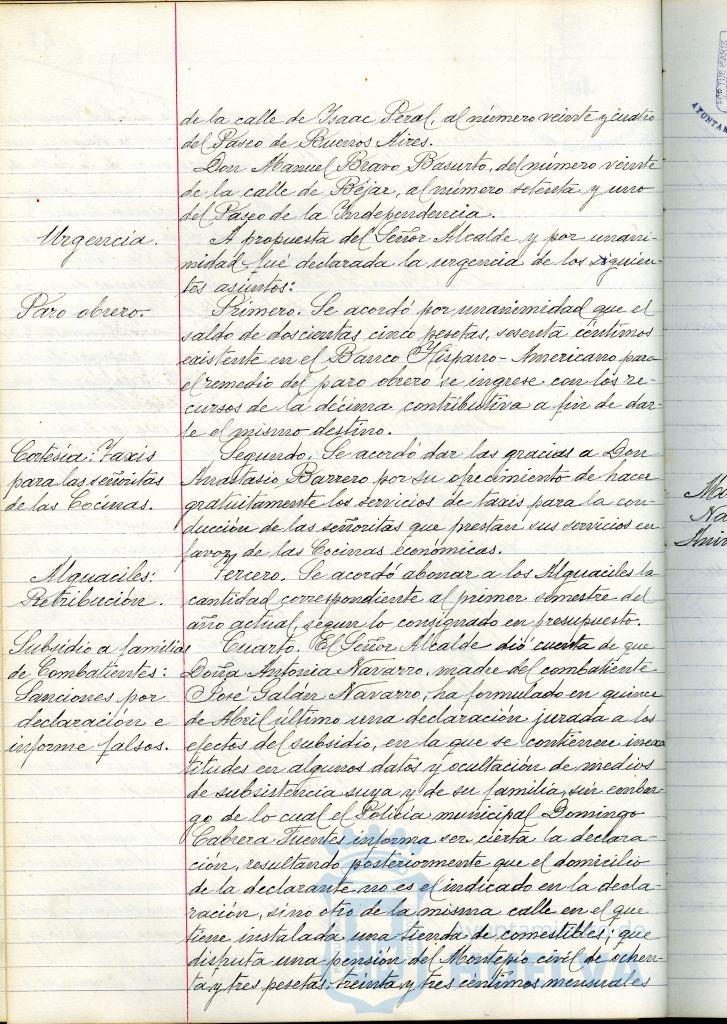 de la calle de Isaac Peral, al número veinte y cuatro
del Paseo de Buenos Aires.
Don Manuel Bravo Basurto, del número veinte
de la calle de Béjar, al número setenta y uno
del Paseo de la Independencia.
Urgencia.
A propuesta del Señor Alcalde y por unani-
midad fué declarada la urgencia de los siguien-
tes asuntos:
Paro obrero.-
Primero. Se acordó por unanimidad que el
saldo de doscientas cinco pesetas, sesenta céntimos
existente en el Banco Hispano-Americano para
el remedio del paro obrero se ingrese con los re-
cursos de la décima contributiva a fin de dar-
le el mismo destino.
Cortesía: Taxis
para las señoritas
de las Cocinas.
Segundo. Se acordó dar las gracias a Don
Anastasio Barrero por su ofrecimiento de hacer
gratuitamente los servicios de taxis para la con-
ducción de las señoritas que prestan sus servicios en
favor de las Cocinas económicas.
Alguaciles:
Retribución.
Tercero. Se acordó abonar a los Alguaciles la
cantidad correspondiente al primer semestre del
año actual, segun lo consignado en presupuesto.
Subsidio a familias
de Combatientes:
Sanciones por
declaración e
informe falsos.
Cuarto. El Señor Alcalde dió cuenta de que
Doña Antonia Navarro, madre del combatiente
José Galán Navarro, ha formulado en quince
de Abril último una declaración jurada a los
efectos del subsidio, en la que se contienen inexac
titudes en algunos datos y ocultación de medios
de subsistencia suya y de su familia, sin embar-
go de lo cual el Policía municipal Domingo
Cabrera Fuentes informa ser cierta la declara-
ción, resultando posteriormente que el domicilio
de la declarante no es el indicado en la decla-
ración, sino otro de la misma calle en el que
tiene instalada una tienda de comestibles; que
disfruta una pensión del Montepío civil de ochen-
ta y tres pesetas treinta y tres céntimos mensuales
Ayuntamiento de
HUELVA